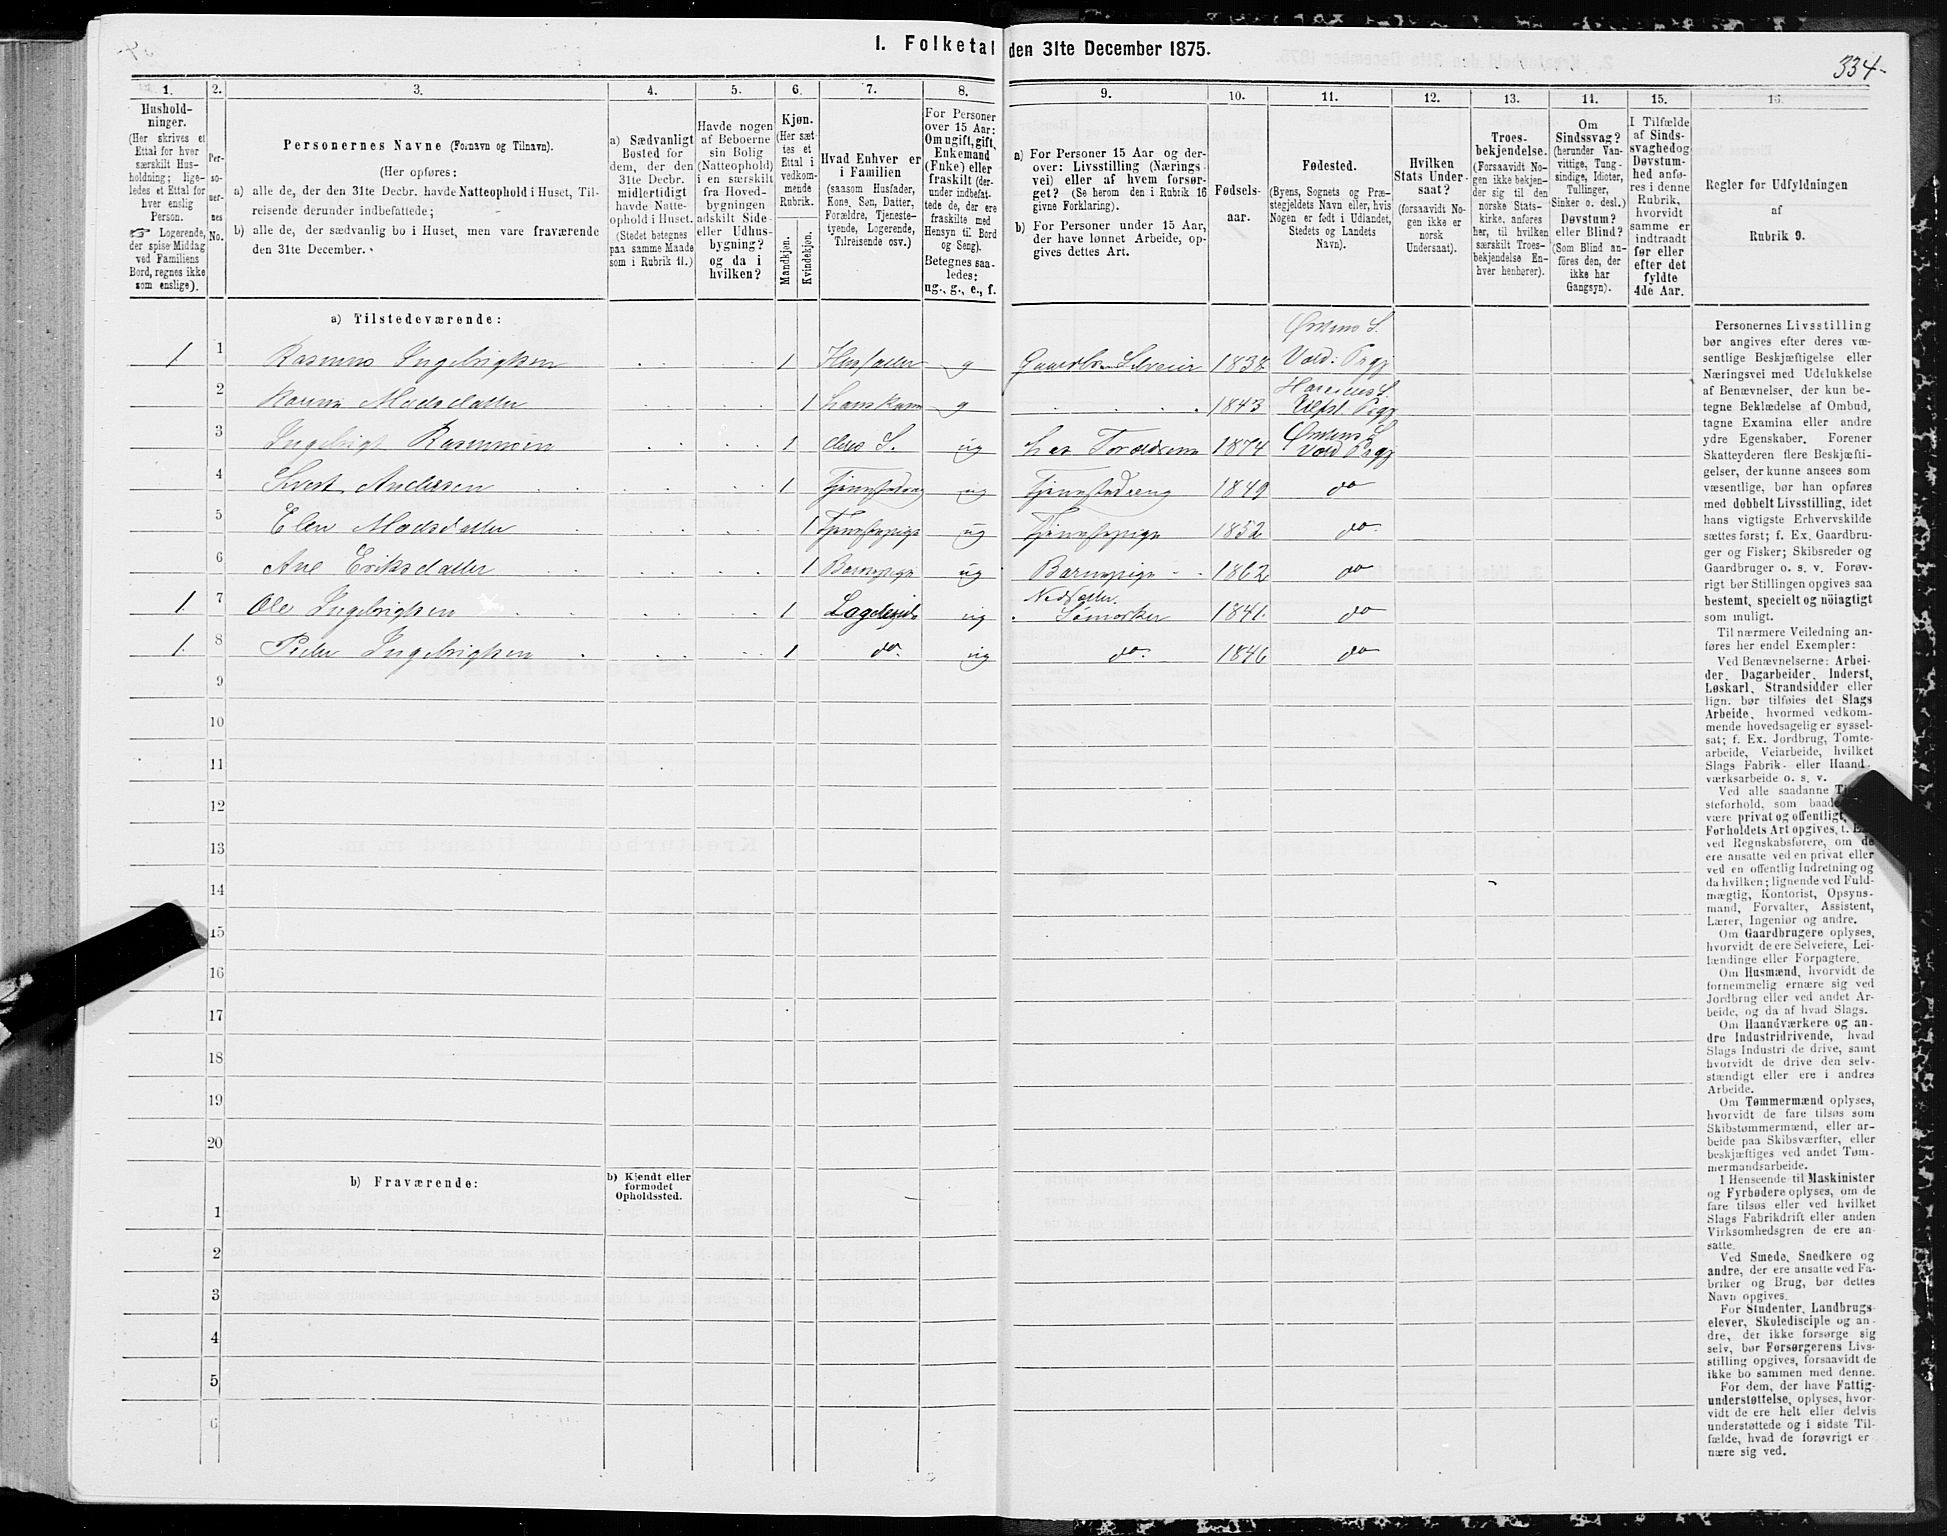 1. Folketal den 31te December 1875.
334-
1.
2.
3.
4.
5.
6.
7.
8.
9.
10.
11.
12.
13.
14.
15.
16.
Hushold-
ninger.
(Her skrives et
Ettal for hver
særskilt Hus-
holdning; lige-
ledes et Ettal for
hver enslig
Person.
☞ Logerende,
der spise Middag
ved Familiens
Bord, regnes ikke
som enslige).
Per-
so-
ner-
nes
No.
Personernes Navne (Fornavn og Tilnavn).
(Her opføres:
a) alle de, der den 31te Decbr. havde Natteophold i Huset, Til-
reisende derunder indbefattede;
b) alle de, der sædvanlig bo i Huset, men vare fraværende
den 31te December.
a) Sædvanligt
Bosted for
dem, der den
31te Decbr.
midlertidigt
havde Natte-
ophold i Huset.
(Stedet betegnes
paa samme Maade
som i Rubrik 11.)
Havde nogen
af Beboerne
sin Bolig
(Natteophold)
i en særskilt
fra Hoved-
bygningen
adskilt Side-
eller Udhus-
bygning?
og da i
hvilken?
Kjøn.
(Her sæt-
tes et
Ettal i
vedkom-
mende
Rubrik.
Mandkjøn.
Kvindekjøn.
Hvad Enhver er
i Familien
(saasom Husfader,
Kone, Søn, Datter,
Forældre, Tjeneste-
tyende, Logerende,
Tilreisende osv.)
For Personer
over 15 Aar:
Om ugift, gift,
Enkemand
(Enke) eller
fraskilt (der-
under indbefat-
tede de, der ere
fraskilte med
Hensyn til Bord
og Seng).
Betegnes saa-
ledes:
ug., g., e., f.
a) For Personer 15 Aar og der-
over: Livsstilling (Nærings-
vei) eller af hvem forsør-
get? (Se herom den i Rubrik 16
givne Forklaring).
b) For Personer under 15 Aar,
der have lønnet Arbeide, op-
gives dettes Art.
Fødsels-
aar.
Fødested.
(Byens, Sognets og Præ-
stegjeldets Navn eller, hvis
Nogen er født i Udlandet,
Stedets og Landets
Navn).
Hvilken
Stats Under-
saat?
(forsaavidt No-
gen ikke er
norsk
Undersaat).
Troes-
bekjendelse.
(Forsaavidt No-
gen ikke bekjen-
der sig til den
norske Stats-
kirke, anføres
her, til hvilken
særskilt Troes-
bekjendelse En-
hver henhører).
Om
Sindssvag?
(herunder Van-
vittige, Tung-
sindige, Idioter,
Tullinger,
Sinker o. desl.)
Døvstum?
eller Blind?
(Som Blind an-
føres den, der
ikke har
Gangsyn).
I Tilfælde
af Sinds-
svaghed og
Døvstum-
hed anfø-
res i denne
Rubrik,
hvorvidt
samme er
indtraadt
før eller
efter det
fyldte
4de Aar.
Regler for Udfyldningen
af
Rubrik 9.
a) Tilstedeværende:
1 1 Rasmus Ingebrigtsen 1 Husfader g Gaardbr. Selveier 1838 Ørstens S. Vold: Prgj
2 Karen Madsdatter 1 hans Kone g 1843 Hareides S. Ulfst. Prgj
3 Ingebrigt Rasmussen 1 deres S. ug hos Forældrene 1874 Ørstens S. Vold Prgj
4 Sivert Andersen 1 Tjenestedreng ug Tjenestedreng 1849 do
5 Elen Madsdatter 1 Tjenestepige ug Tjenestepige 1852 do.
6 Ane Eriksdatter 1 Barnepige ug Barnepige 1862 do
1. 7 Ole Ingebrigtsen 1 ug 1841. do
1. 8 Peder Ingebrigtsen 1 do. ug do. 1846 do
9
10
11
12
13
14
15
16
17
18
19
20
b) Fraværende:
b) Kjendt eller
formodet
Opholdssted.
1
2
3
4
5
6
Personernes Livsstilling
bør angives efter deres væ-
sentlige Beskjæftigelse eller
Næringsvei med Udelukkelse
af Benævnelser, der kun be-
tegne Beklædelse af Ombud,
tagne Examina eller andre
ydre Egenskaber. Forener
Skatteyderen flere Beskjæfti-
gelser, der kunne ansees som
væsentlige, bør han opføres
med dobbelt Livsstilling, idet
hans vigtigste Erhvervskilde
sættes først; f. Ex. Gaardbru-
ger og Fisker; Skibsreder og
Gaardbruger o. s. v. Forøv-
rigt bør Stillingen opgives saa
bestemt, specielt og nöiagtigt
som muligt.
Til nærmere Veiledning an-
føres her endel Exempler:
Ved Benævnelserne: Arbei-
der, Dagarbeider, Inderst,
Løskarl, Strandsidder eller
lign. bør tilføies det Slags
Arbeide, hvormed vedkom-
mende hovedsagelig er syssel-
sat; f. Ex. Jordbrug, Tomte-
arbeide, Veiarbeide, hvilket
Slags Fabrik- eller Haand-
værksarbeide o. s. v.
Ved alle saadanne
steforhold, som
være privat og offentligt,
Forholdets Art opgives, t.
ved Regnskabsførere, om de
ere ansatte ved en privat eller
ved en offentlig Indretning og
da hvilken; lignende ved Fuld-
mægtig, Kontorist, Opsyns-
mand, Forvalter, Assistent,
Lærer, Ingeniør og andre.
Om Gaardbrugere oplyses,
hvorvidt de ere Selveiere, Lei-
lændinge eller Forpagtere.
Om Husmænd, hvorvidt de
fornemmelig ernære sig ved
Jordbrug eller ved andet Ar-
beide, og da af hvad Slags.
Om Haandværkere og an-
dre Industridrivende, hvad
Slags Industri de drive, samt
hvorvidt de drive den selv-
stændigt eller ere i andres
Arbeide.
Om Tømmermænd oplyses,
hvorvidt de fare tilsøs som
Skibstømmermænd, eller ar-
beide paa Skibsværfter, eller
beskjæftiges ved andet Tøm-
mermandsarbeide.
I Henseende til Maskinister
og Fyrbødere oplyses, om de
fare tilsøs eller ved hvilket
Slags Fabrikdrift eller anden
Virksomhedsgren de ere an-
satte.
Ved Smede, Snedkere og
andre, der ere ansatte ved Fa-
briker og Brug, bør dettes
Navn opgives.
For Studenter, Landbrugs-
elever, Skoledisciple og an-
dre, der ikke forsørge sig
selv, bør Forsørgerens Livs-
stilling opgives, forsaavidt de
ikke bo sammen med denne.
For dem, der have Fattig-
understøttelse, oplyses, hvor-
vidt de ere helt eller delvis
understøttede og i sidste Til-
fælde, hvad de forøvrigt er-
nære sig ved.